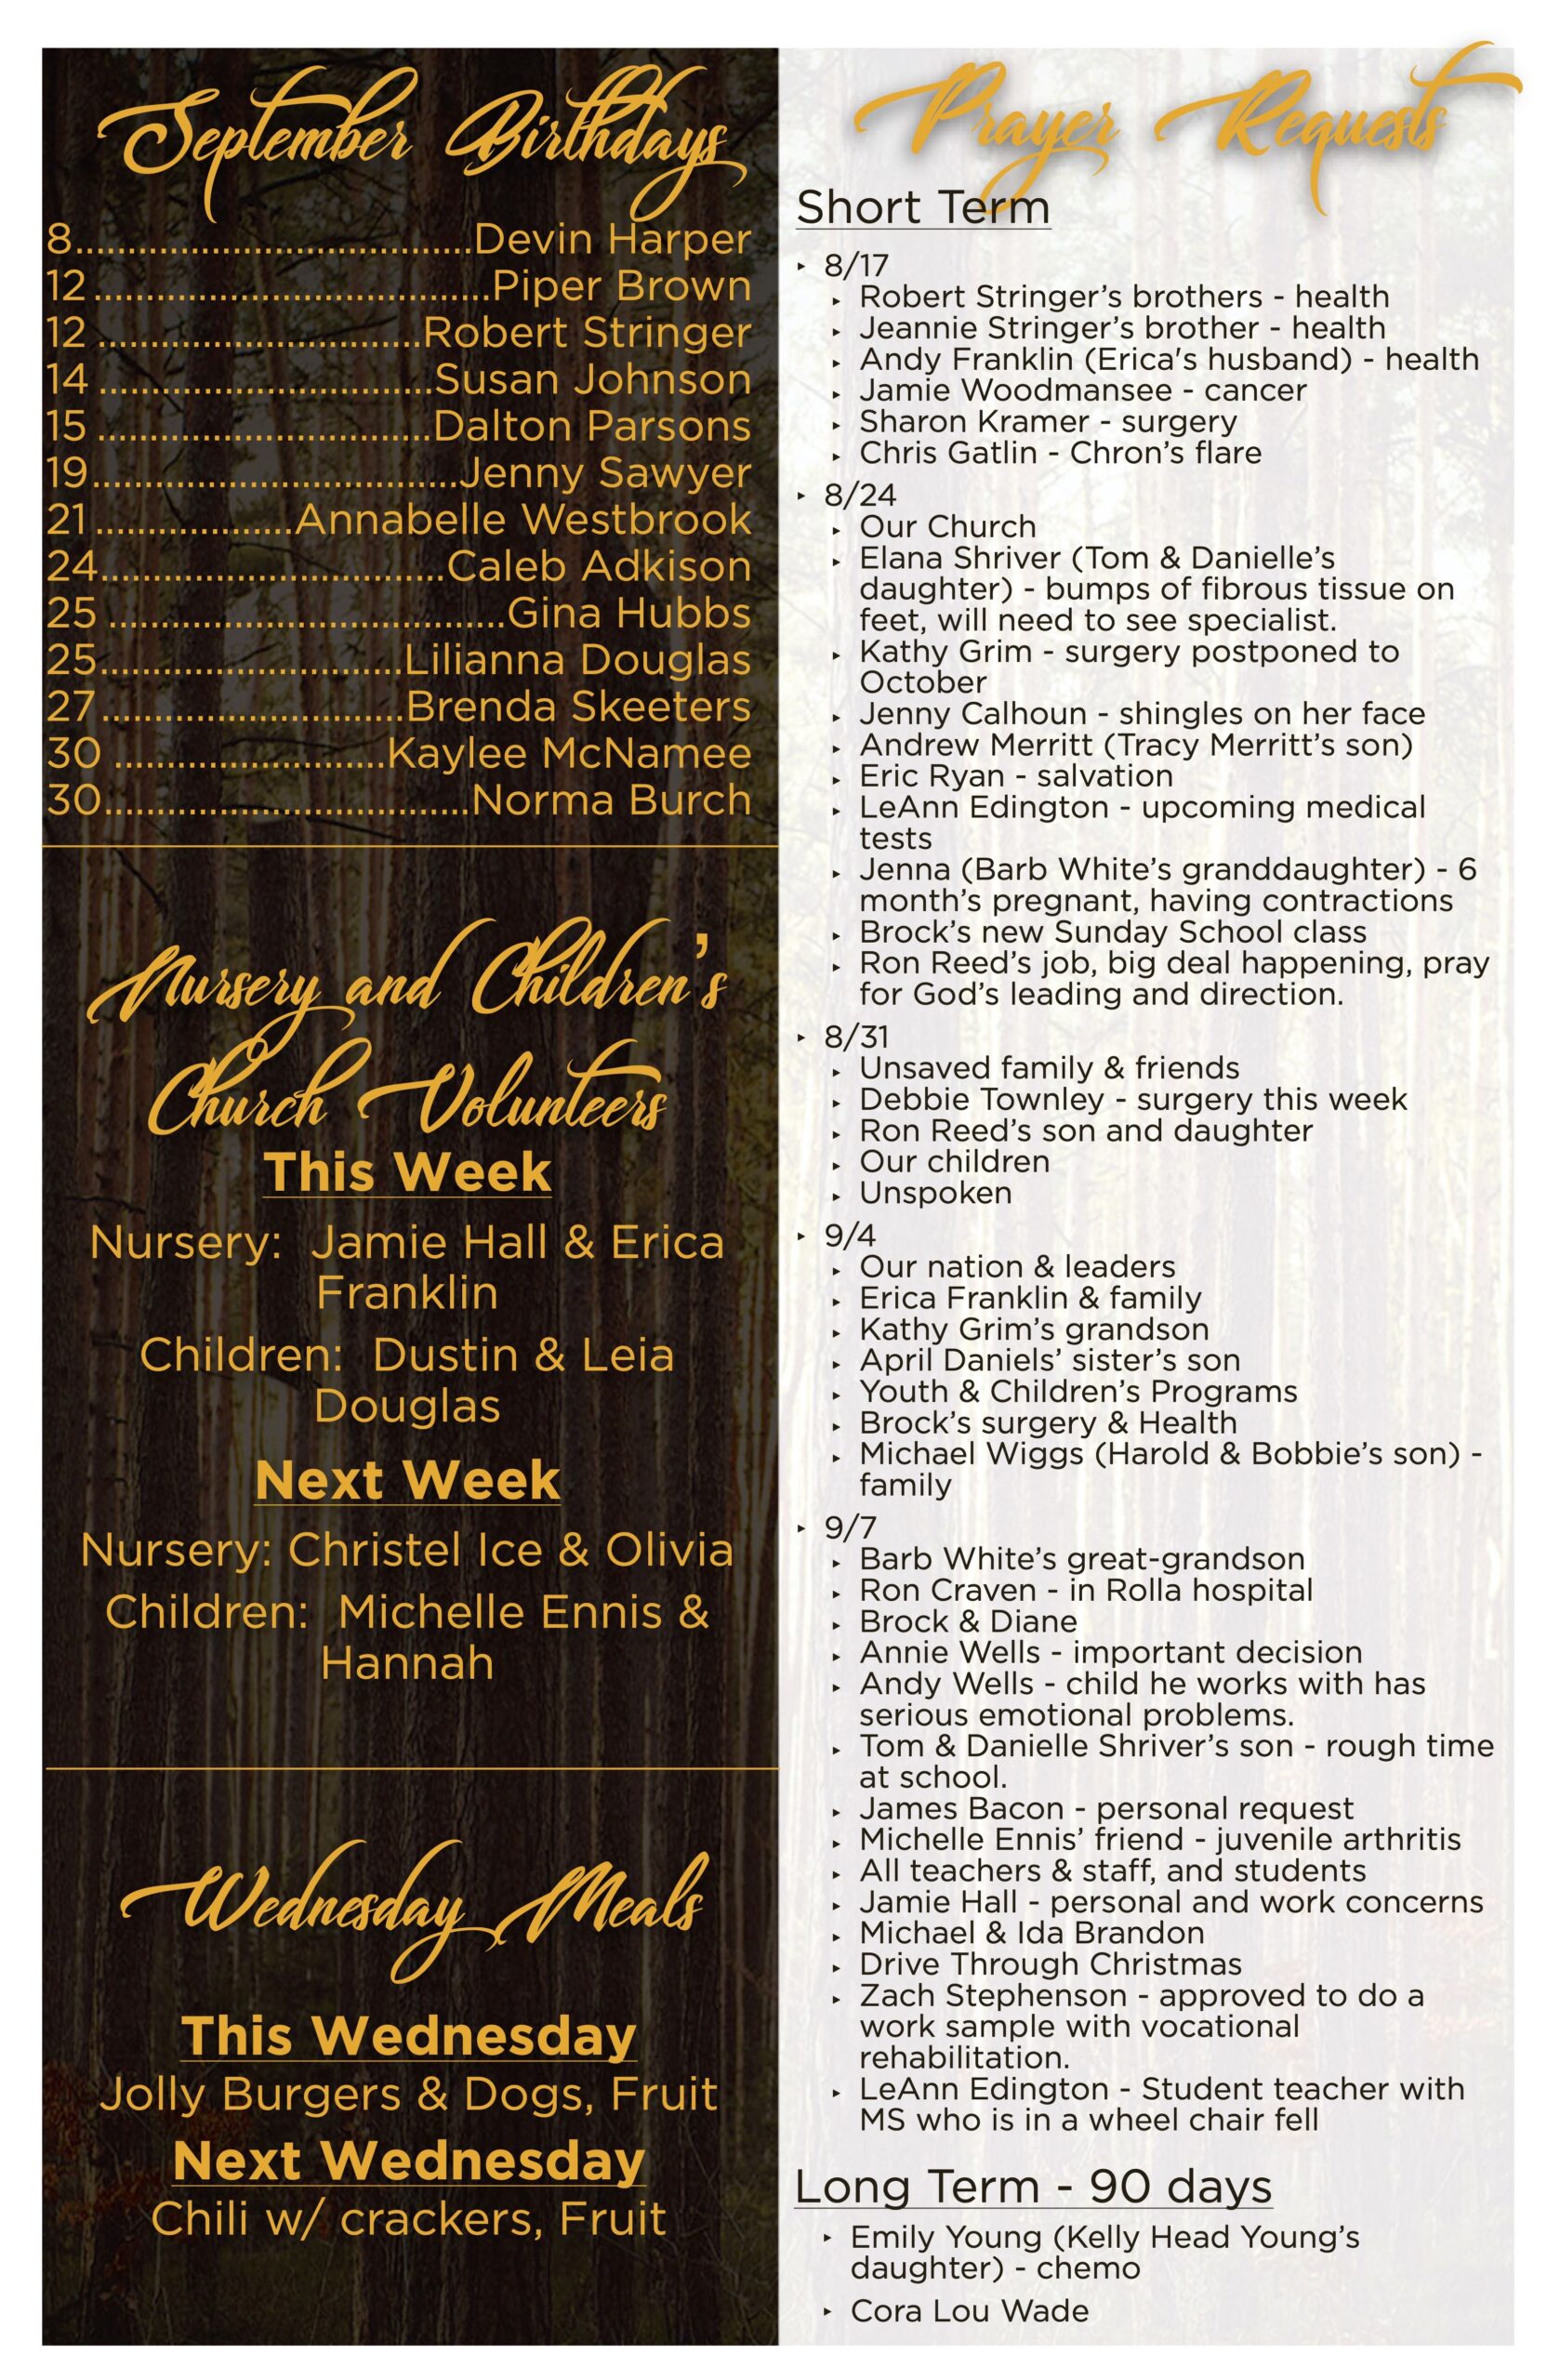 September Birthdays
8......................................Devin Harper
12 ......................................Piper Brown
12 ...............................Robert Stringer
14 ................................Susan Johnson
15 ................................Dalton Parsons
19...................................Jenny Sawyer
21 ...................Annabelle Westbrook
24.................................Caleb Adkison
25 ......................................Gina Hubbs
25.............................Lilianna Douglas
27.............................Brenda Skeeters
30 ..........................Kaylee McNamee
30...................................Norma Burch
Nursery and Children's
Church Volunteers
This Week
Nursery: Jamie Hall & Erica
Franklin
Children: Dustin & Leia
Douglas
Next Week
Nursery: Christel Ice & Olivia
Children: Michelle Ennis &
Hannah
Wednesday Meals
This Wednesday
Jolly Burgers & Dogs, Fruit
Next Wednesday
Chili w/ crackers, Fruit
Prayer Requests
Short Term
‣ 8/17
‣ Robert Stringer’s brothers - health
‣ Jeannie Stringer’s brother - health
‣ Andy Franklin (Erica's husband) - health
‣ Jamie Woodmansee - cancer
‣ Sharon Kramer - surgery
‣ Chris Gatlin - Chron’s flare
‣ 8/24
‣ Our Church
‣ Elana Shriver (Tom & Danielle’s
daughter) - bumps of fibrous tissue on
feet, will need to see specialist.
‣ Kathy Grim - surgery postponed to
October
‣ Jenny Calhoun - shingles on her face
‣ Andrew Merritt (Tracy Merritt’s son)
‣ Eric Ryan - salvation
‣ LeAnn Edington - upcoming medical
tests
‣ Jenna (Barb White’s granddaughter) - 6
month’s pregnant, having contractions
‣ Brock’s new Sunday School class
‣ Ron Reed’s job, big deal happening, pray
for God’s leading and direction.
‣ 8/31
‣ Unsaved family & friends
‣ Debbie Townley - surgery this week
‣ Ron Reed’s son and daughter
‣ Our children
‣ Unspoken
‣ 9/4
‣ Our nation & leaders
‣ Erica Franklin & family
‣ Kathy Grim’s grandson
‣ April Daniels’ sister’s son
‣ Youth & Children’s Programs
‣ Brock’s surgery & Health
‣ Michael Wiggs (Harold & Bobbie’s son) -
family
‣ 9/7
‣ Barb White’s great-grandson
‣ Ron Craven - in Rolla hospital
‣ Brock & Diane
‣ Annie Wells - important decision
‣ Andy Wells - child he works with has
serious emotional problems.
‣ Tom & Danielle Shriver’s son - rough time
at school.
‣ James Bacon - personal request
‣ Michelle Ennis’ friend - juvenile arthritis
‣ All teachers & staff, and students
‣ Jamie Hall - personal and work concerns
‣ Michael & Ida Brandon
‣ Drive Through Christmas
‣ Zach Stephenson - approved to do a
work sample with vocational
rehabilitation.
‣ LeAnn Edington - Student teacher with
MS who is in a wheel chair fell
Long Term - 90 days
‣ Emily Young (Kelly Head Young’s
daughter) - chemo
‣ Cora Lou Wade